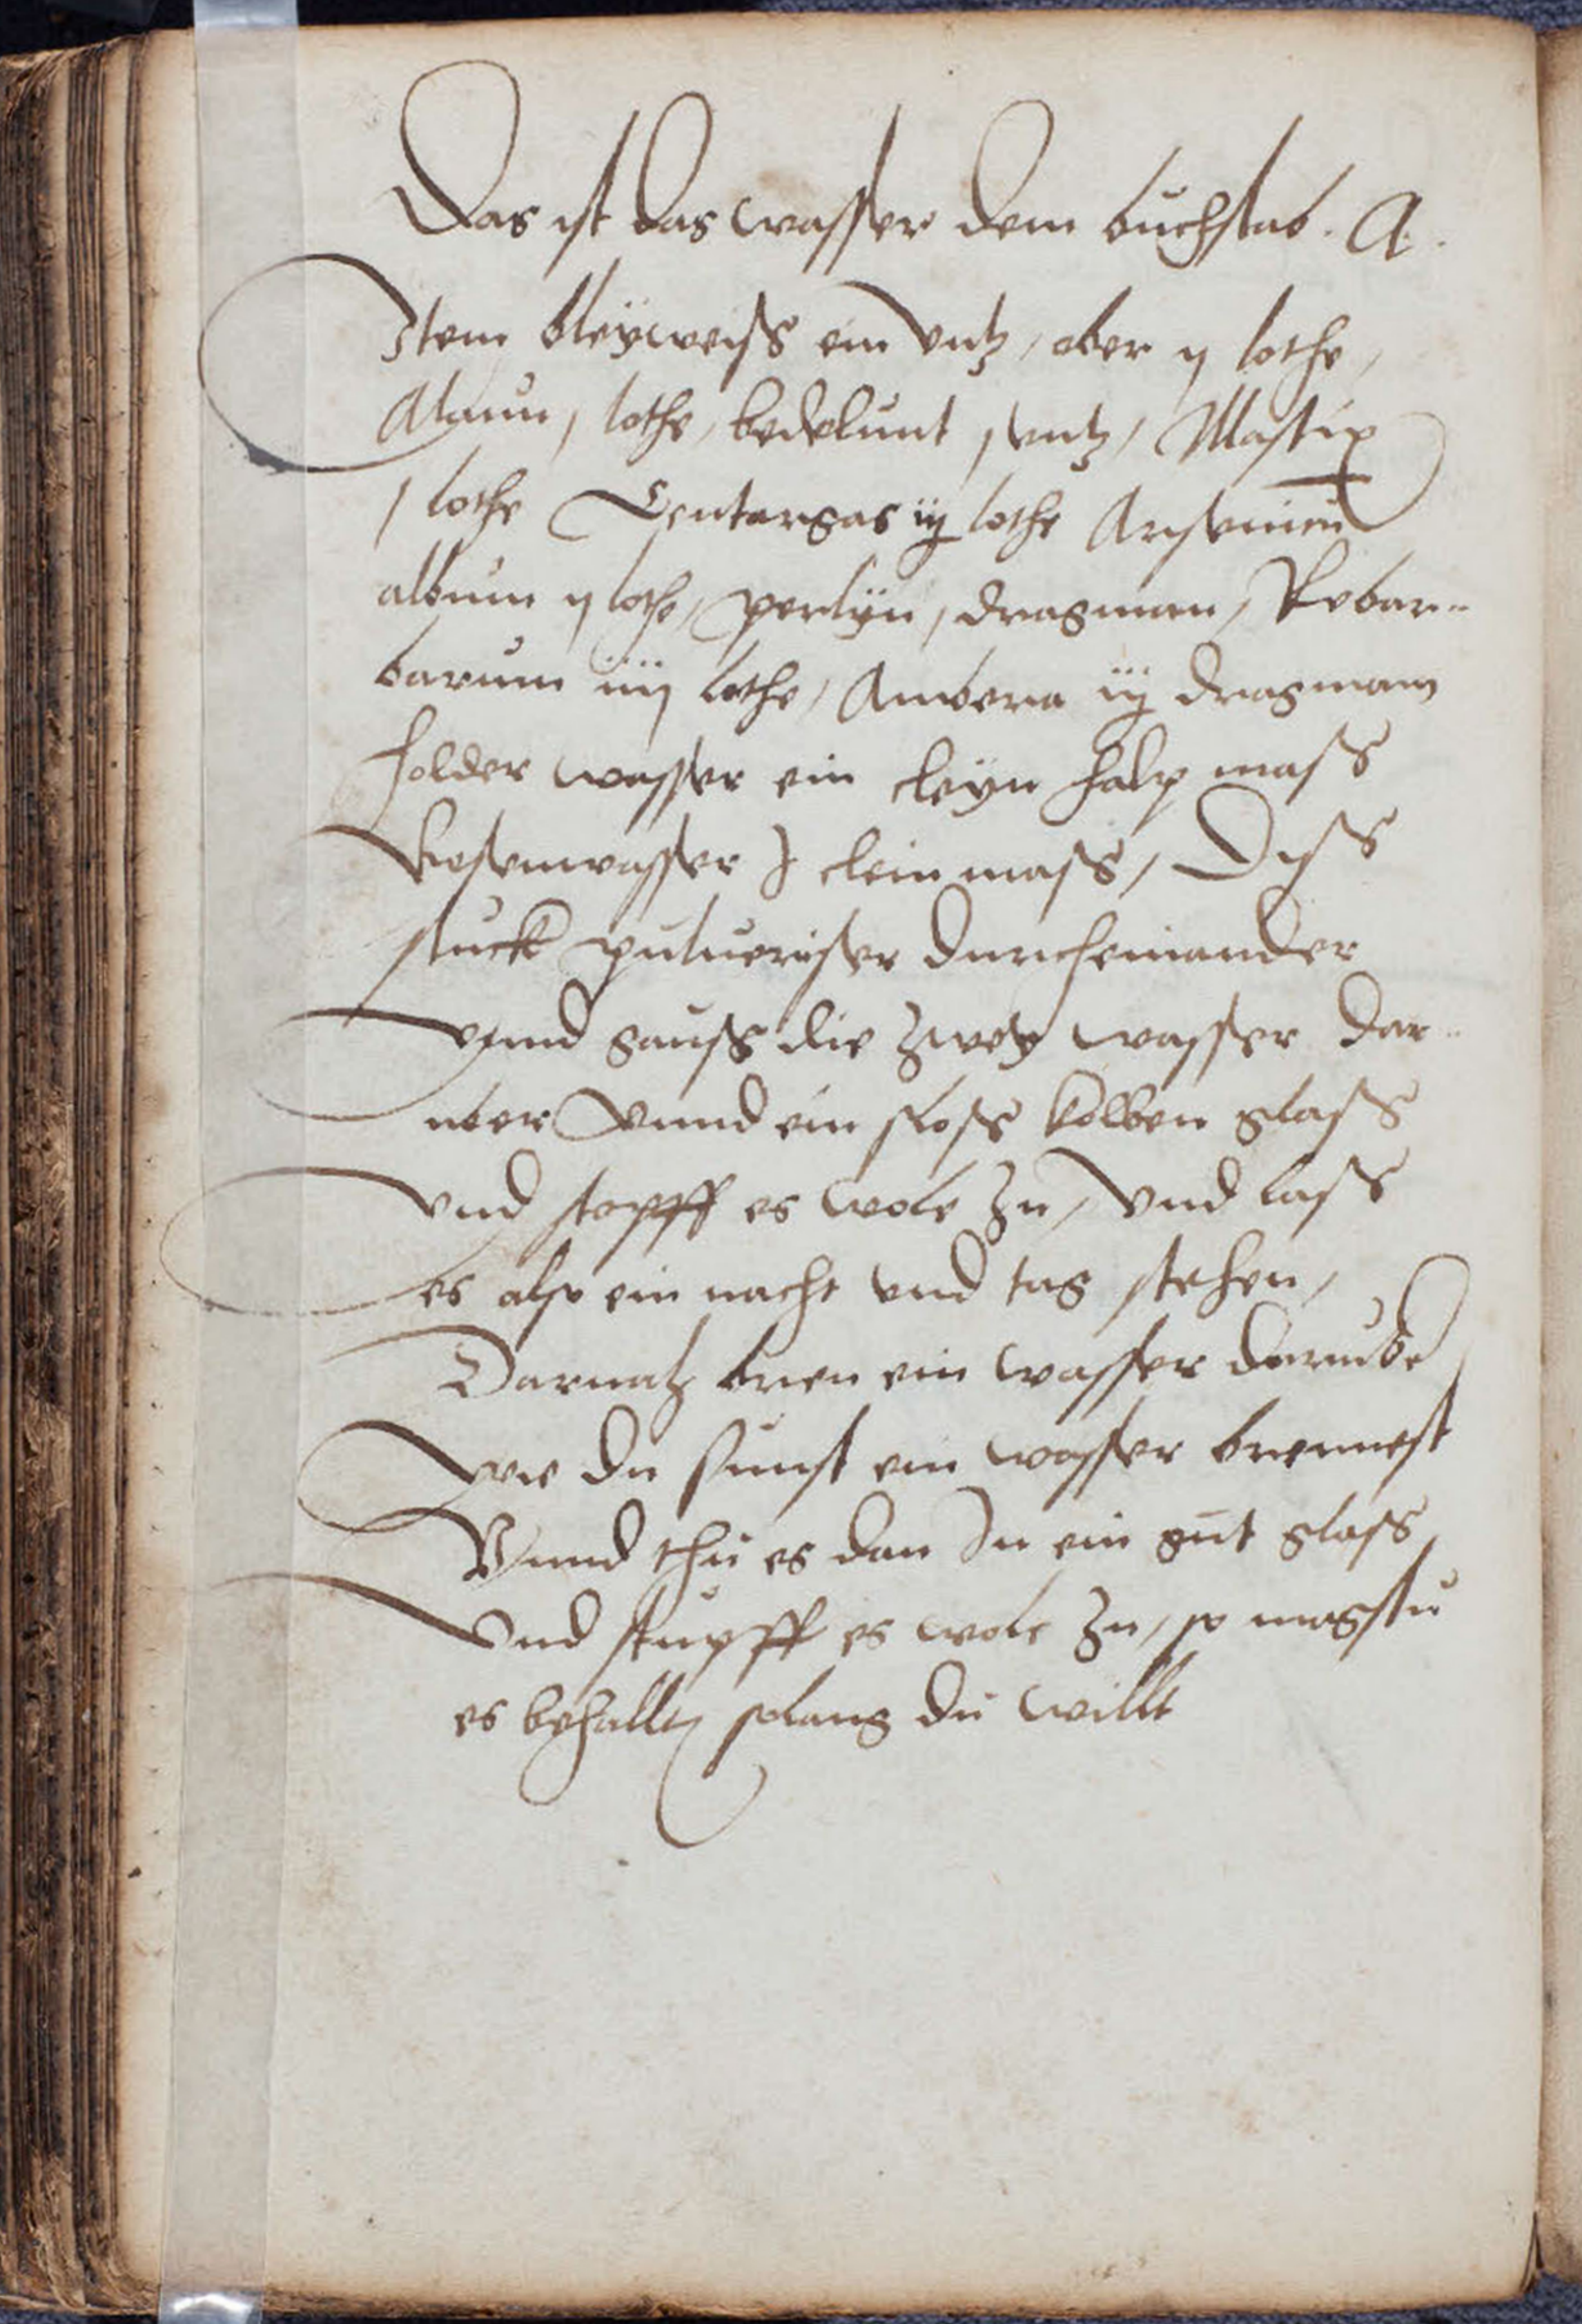 Das ist das wasser dem buchstab . A .
Item bleÿweiss ein untz, ober ij lothe,
Alaun j lothe, bedelunt j untz, Mastix
j lothe Centargas iij lothe Arsenicu
album ij lothe, perlÿn j dragman, Rebar-
barum iiij lothe, Ambera iij dragmam
holder wasser ein cleyn halp mass
Rosenwasser j clein mass, Diss
stuck puluerisser durcheinander
vnnd gauss die zweÿ wasser dar-
uber vnnd ein kolben glass
vnd stopff es wole zu, vnd lass
es also ein nacht vnd tag stehen,
Darnach bren ein wasser darube
wie du sunst ein wasser brennest
Vnnd thu es dan In ein gut glass
Vnd stupff es wole zu, so magstu
es behallten solang du willt